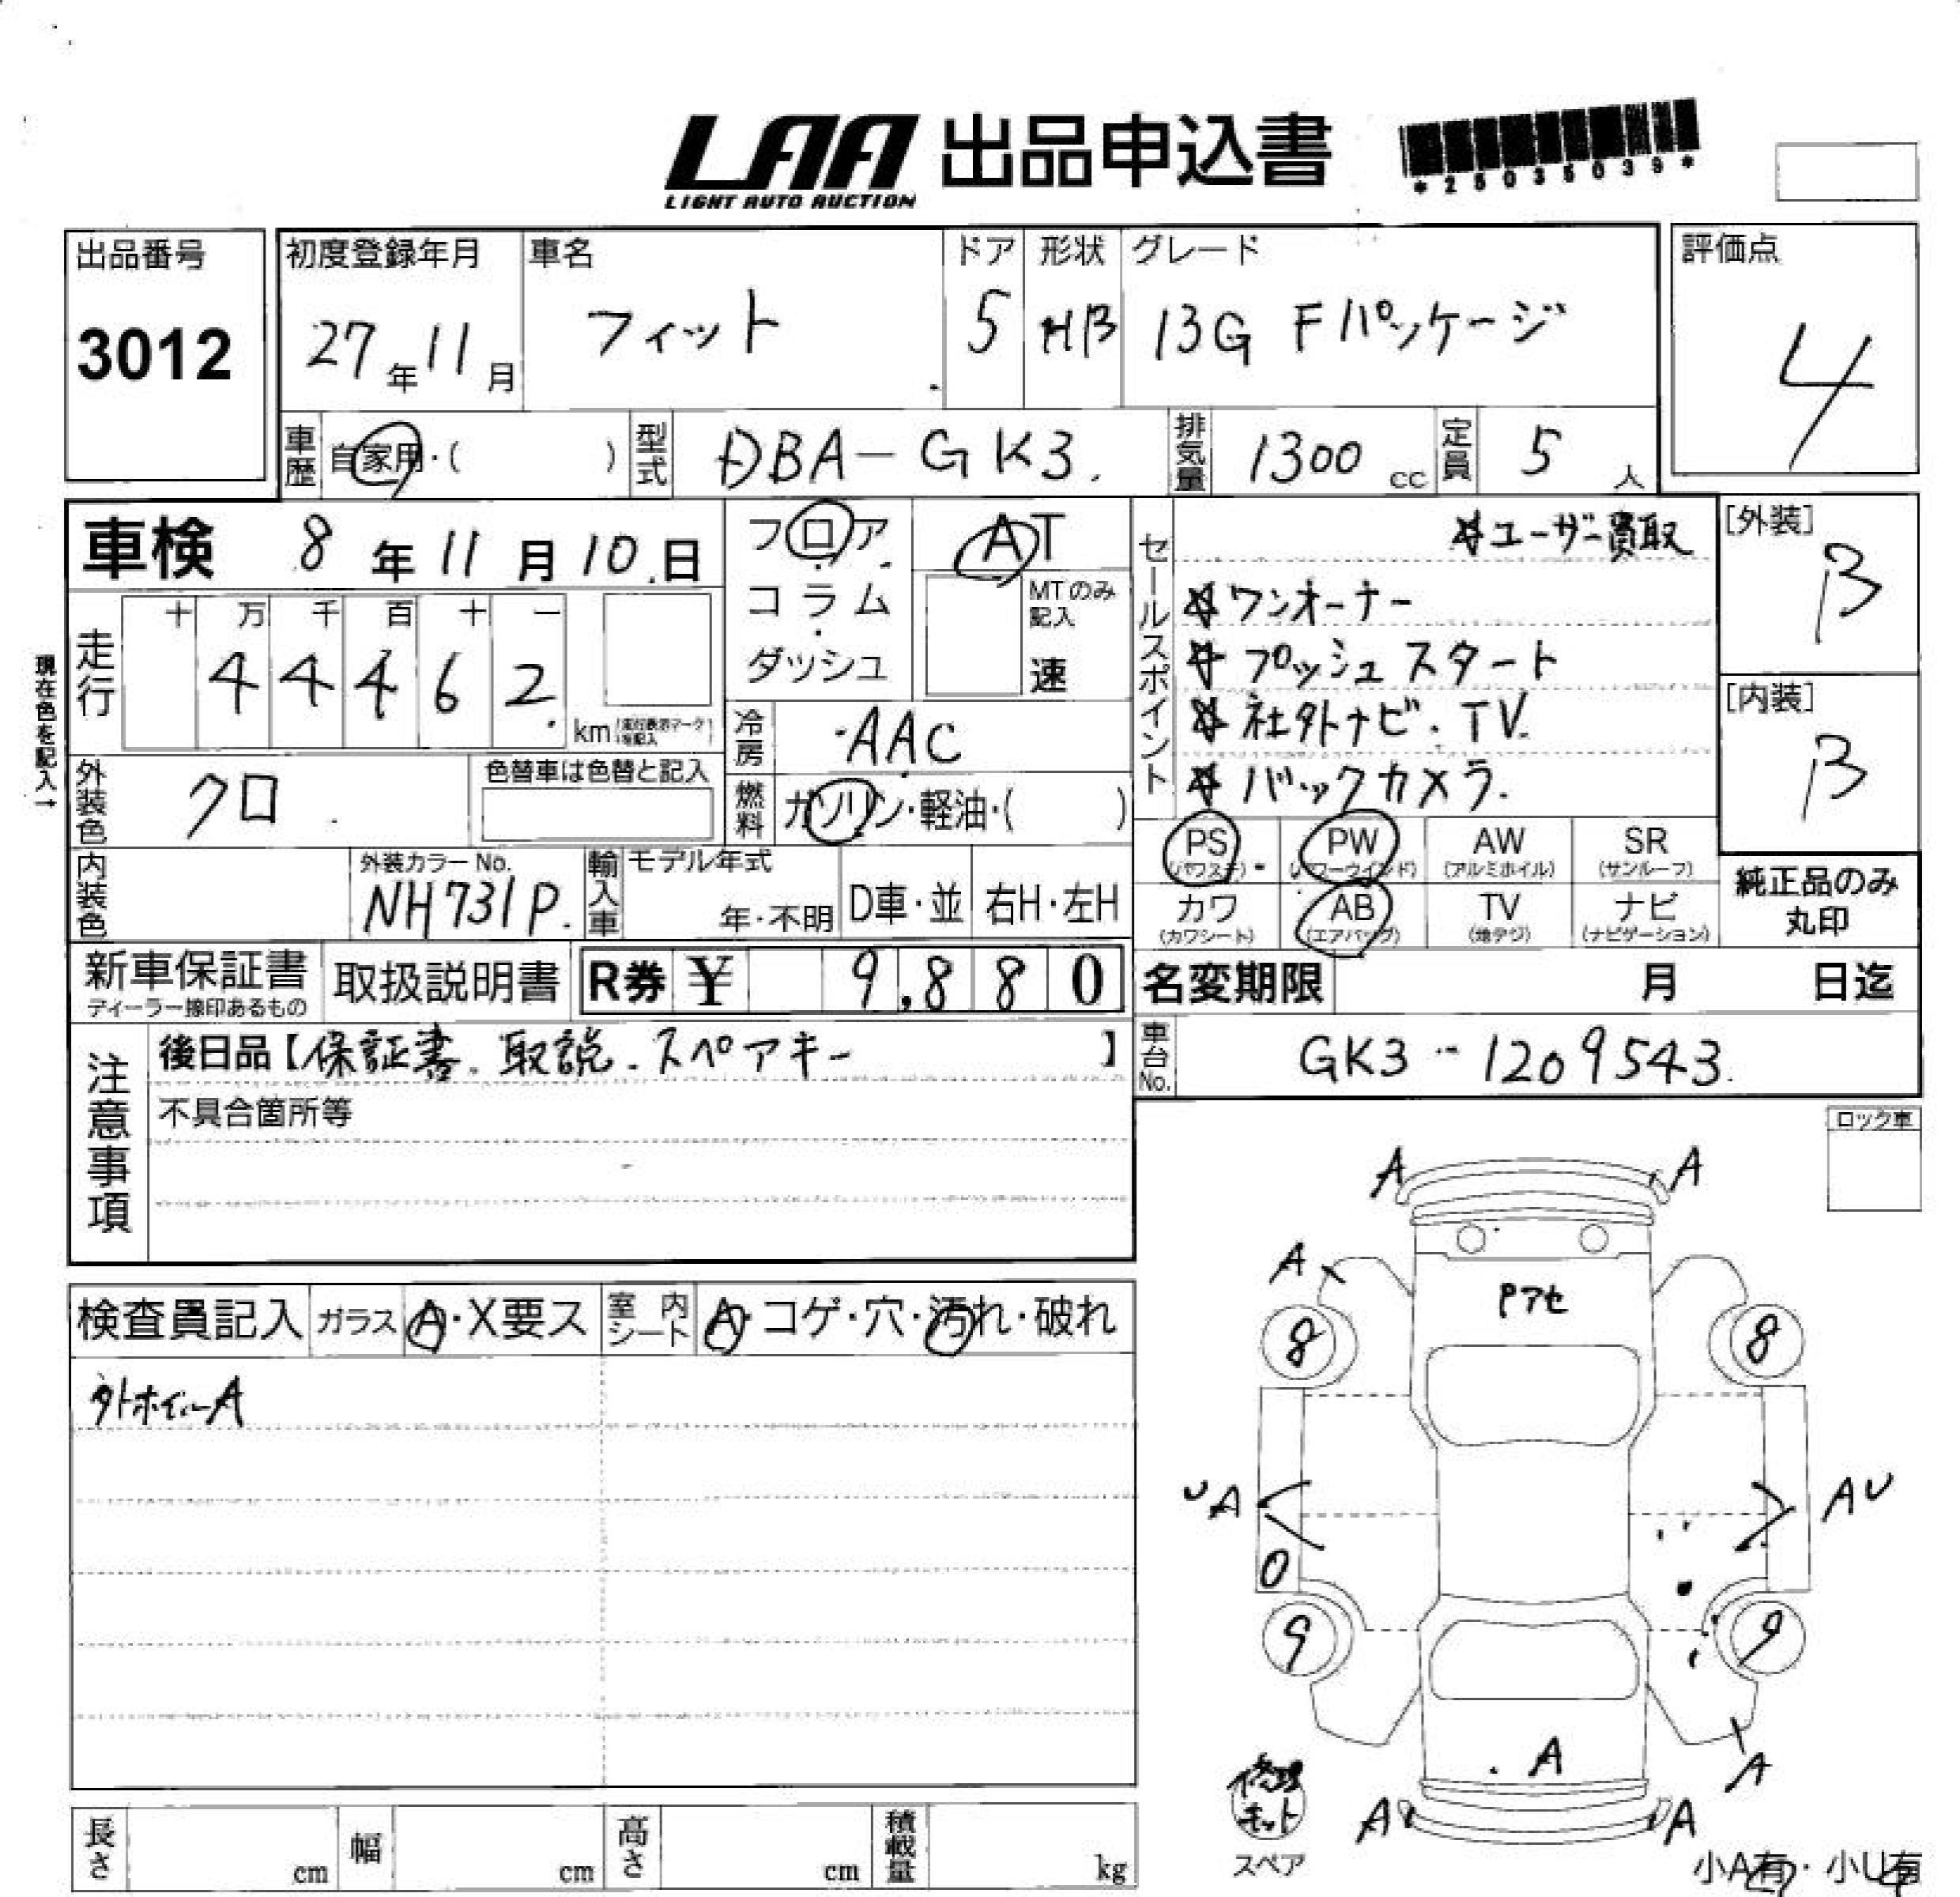 LAA 出品申込書
LIGHT AUTO AUCTION
*25035039*
出品番号
3012
初度登録年月
27年11月
車名
フィット
ドア
5
形状
HB
グレード
13G Fパッケージ
評価点
4
車歴 自家用・( )
型式 DBA-GK3.
排気量 1300 cc
定員 5 人
車検 8年11月10日
フロア
コラム
ダッシュ
AT
MTのみ記入
速
セールスポイント
☆ユーザー買取
☆ワンオーナー
☆プッシュスタート
☆社外ナビ.TV.
☆バックカメラ.
[外装]
B
[内装]
B
現在色を記入→
走行
十 万 千 百 十 一
4 4 4 6 2
km
冷房 AAC
外装色 クロ
色替車は色替と記入
燃料 ガソリン・軽油・( )
PS (パワステ)
PW (パワーウインド)
AW (アルミホイル)
SR (サンルーフ)
内装色
外装カラーNo.
NH731P.
輸入車
モデル年式
年・不明
D車・並
右H・左H
カワ (カワシート)
AB (エアバッグ)
TV (地デジ)
ナビ (ナビゲーション)
純正品のみ
丸印
新車保証書
ディーラー捺印あるもの
取扱説明書
R券 ¥ 9,880
名変期限 月 日迄
注意事項
後日品【保証書.取説.スペアキー】
不具合箇所等
車台No. GK3-1209543.
ロック車
検査員記入
ガラス A・X要ス
室内シート A・コゲ・穴・汚れ・破れ
外ホイールA
A A
A
Pアセ
8 8
UA AU
0
9 9
A
A
A A
修理キット
スペア
小A有・小U有
長さ cm
幅 cm
高さ cm
積載量 kg